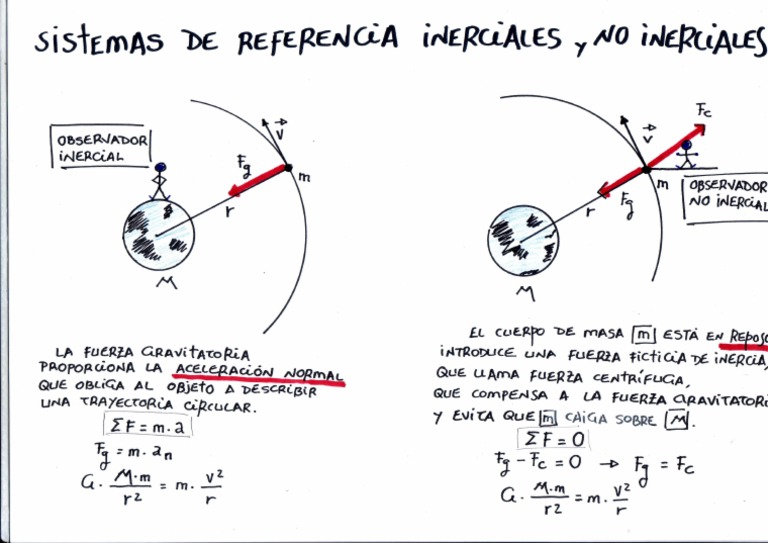 SISTEMAS DE REFERENCIA INERCIALES y NO INERCIALES
OBSERVADOR
INERCIAL
Fg
V
m
r
M
LA FUERZA GRAVITATORIA
PROPORCIONA LA ACELERACIÓN NORMAL
QUE OBLIGA AL OBJETO A DESCRIBIR
UNA TRAYECTORIA CIRCULAR.
ΣF = m·a
Fg = m·an
G· M·m/r2 = m· v2/r
Fc
V
m
Fg
r
OBSERVADOR
NO INERCIAL
M
EL CUERPO DE MASA m ESTÁ EN REPOSO
INTRODUCE UNA FUERZA FICTICIA DE INERCIA,
QUE LLAMA FUERZA CENTRÍFUGA,
QUE COMPENSA A LA FUERZA GRAVITATORI
Y EVITA QUE m CAIGA SOBRE M.
ΣF = 0
Fg - Fc = 0 → Fg = Fc
G· M·m/r2 = m· v2/r